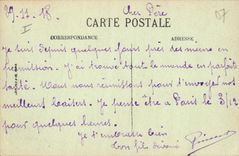 29-11-18.
Cher Père
CARTE POSTALE
CORRESPONDANCE
ADRESSE
Je suis depuis quelques jours près des miens en
permission. J'ai trouvé tout le monde en parfaite
santé. Nous nous réunissons pour t'envoyer nos
meilleurs baisers. Je pense être à Paris le 3/12
pour quelques heures.
Je t'embrasse bien
Ton fils